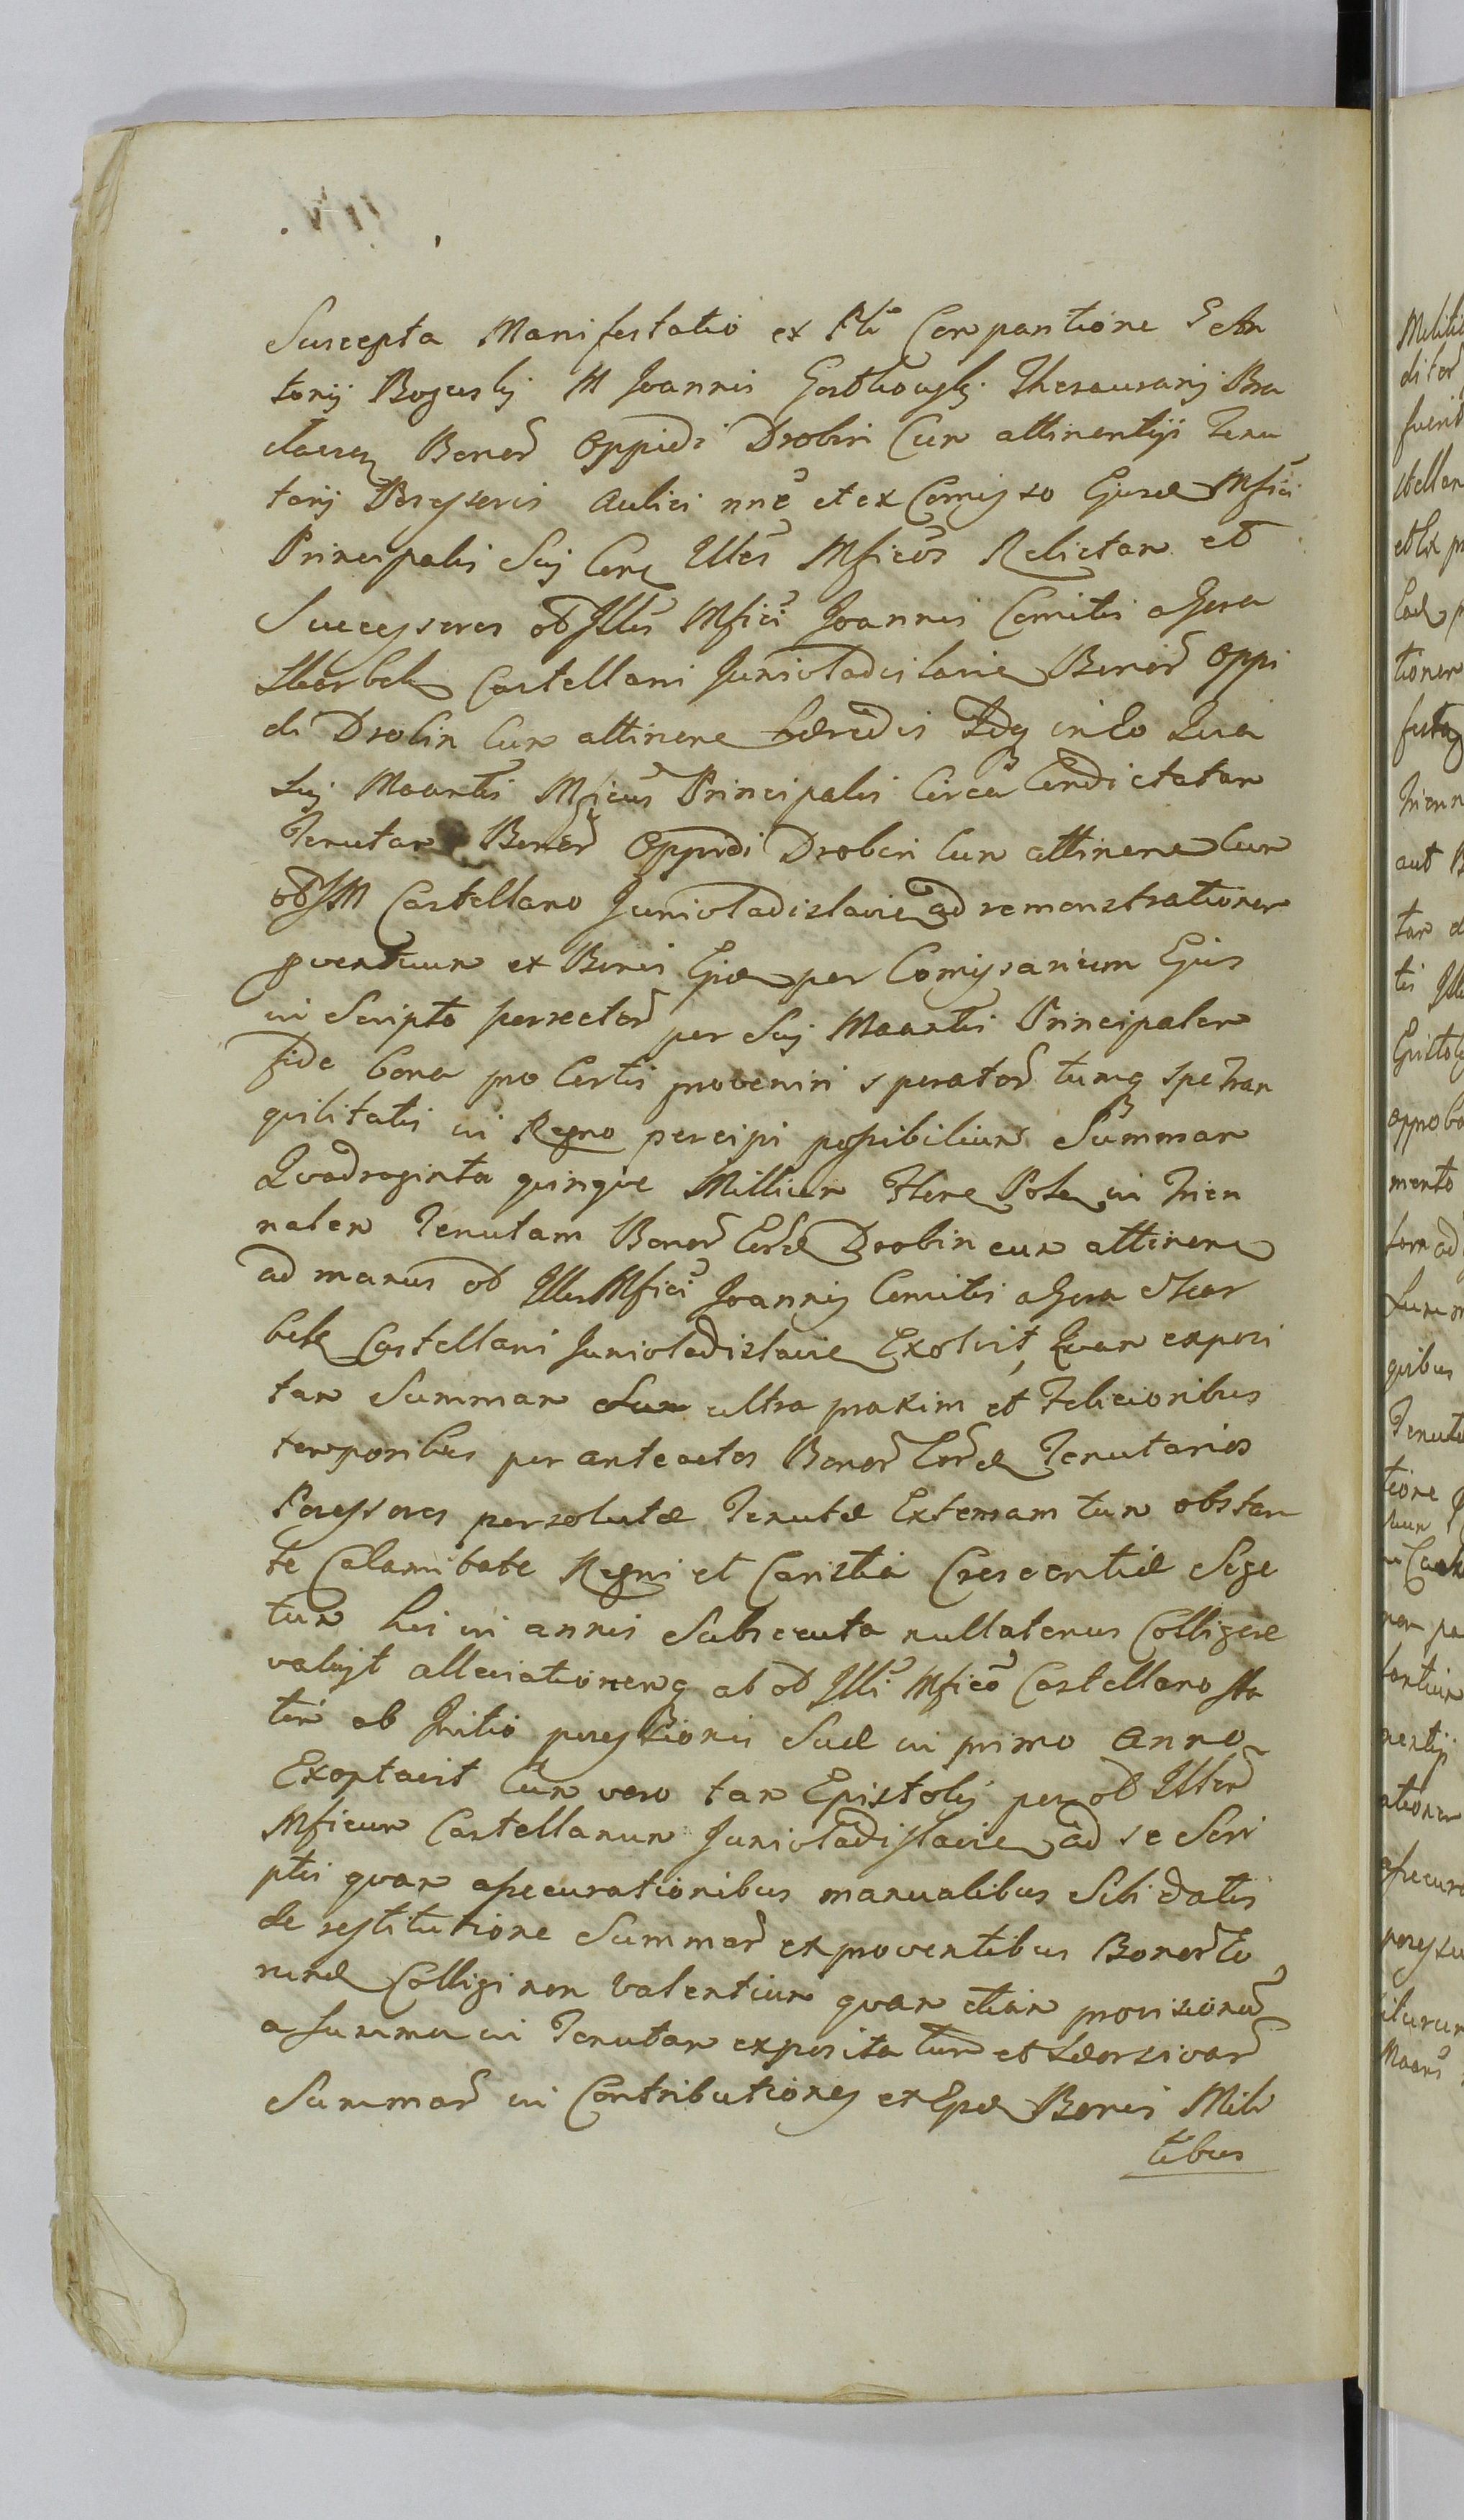 Suscepta Manifestatio ex Pti Comparitione
torij Boguslij M Joannis Thesaurarij Bra
claven Bonor Oppidi Drobin Cum attinentijs Tenu
torij Possessoris Aulici nne et ex Comisso Ejusd Mfici
Principalis Sui Cora Illes Mficos Relictam et
Successores od Illis Mfici Joannis Comitis a Gora
Skarbek Castellani Juniwladislavien Bonor Oppi
di Drobin Cum attinen hæredis Idq in Eo Quia
Suj Maantis Mficus Principalis Circa Condictatam
Tenutam Bonor Oppidi Drobin Cum attinen Cum
od IM Castellano Juniwladislavien ad remonstrationem
pventuum ex Bonis Ejsd per Comissarium Ejus
in Scripto porrector per Suj Maantis Principalem
fide bona pro Certis proveniri sperator tumq spe tran
quilitatis in Regno percipi possibilium Summam
Quadraginta quinque Millium flene Pole in Trien
nalem Tenutam Bonor Eord Drobin cum attinen
ad manus od Illis Mfici Joannis Comitis a Gora Skar
bek Castellani Juniwladislavien Exolvit, Quam exposi
tam Summam ultra praxim et felicioribus
temporibus per anteactos Bonor Eord Tenutarios
Possessores persolutæ Tenutæ Extensam tum obstan
te Calamitate Regni et Caristia Crescentiæ Sege
tum his in annis Subsecuta nullatenus Colligere
valuit alleviationemq ab od Illi Mfico Castellano sta
tim ab Initio possessionis Suæ in primo Anno
Exoptavit Cum vero tam Epistolis per od Illem
Mficum Castellanum Juniwladislavien ad se Scri
ptis quam assecurationibus manualibus Sibi datis
de restitutione Summar ex proventibus Bonor Eo
rund Colligi non valentium quam etiam provisionu
a summa in Tenutam exposita tum et Seorsivar
Summar in Contributiones ex Ejsd Bonis Mili
tibus